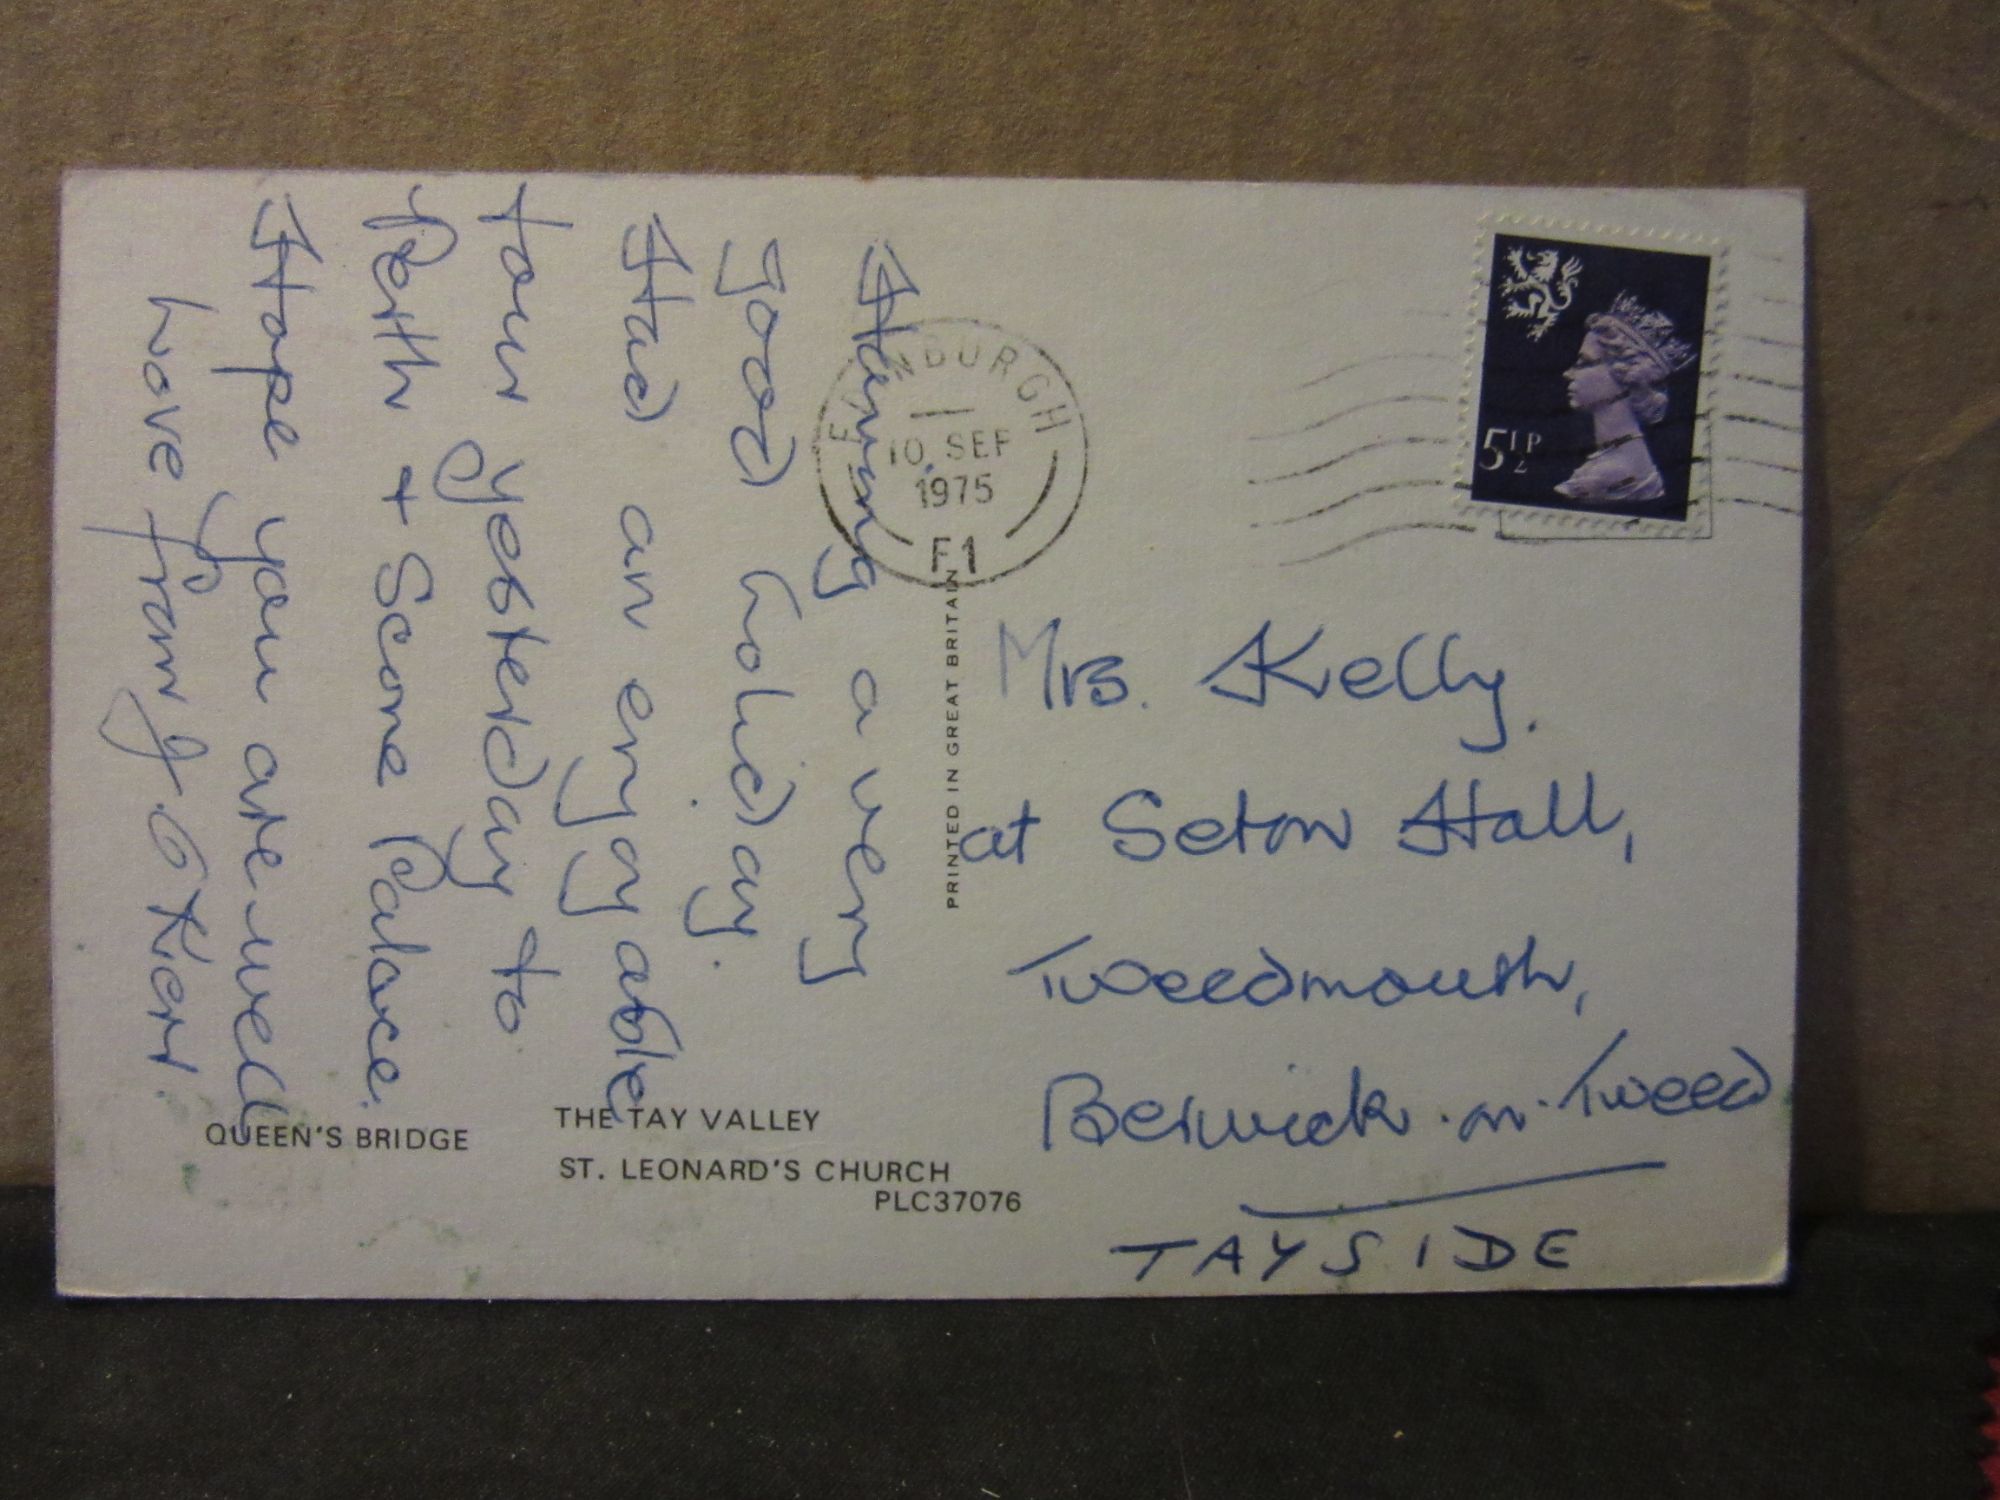 Having a very
good holiday.
Had an enjoyable
tour yesterday to
Perth + Scone Palace.
Hope you are well
Love from J. O Kerr.
EDINBURGH
10. SEP
1975
F1
5½P
PRINTED IN GREAT BRITAIN
Mrs. Kelly.
at Seton Hall,
Tweedmouth,
Berwick-on-Tweed
TAYSIDE
QUEEN'S BRIDGE
THE TAY VALLEY
ST. LEONARD'S CHURCH
PLC37076